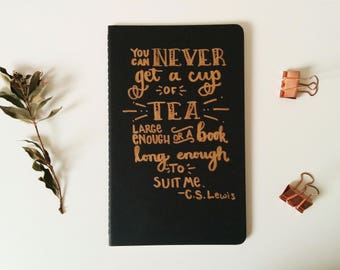 YOU CAN NEVER
get a cup
OF
TEA
LARGE ENOUGH OR A book
long enough
TO
SUIT ME.
-C.S. Lewis